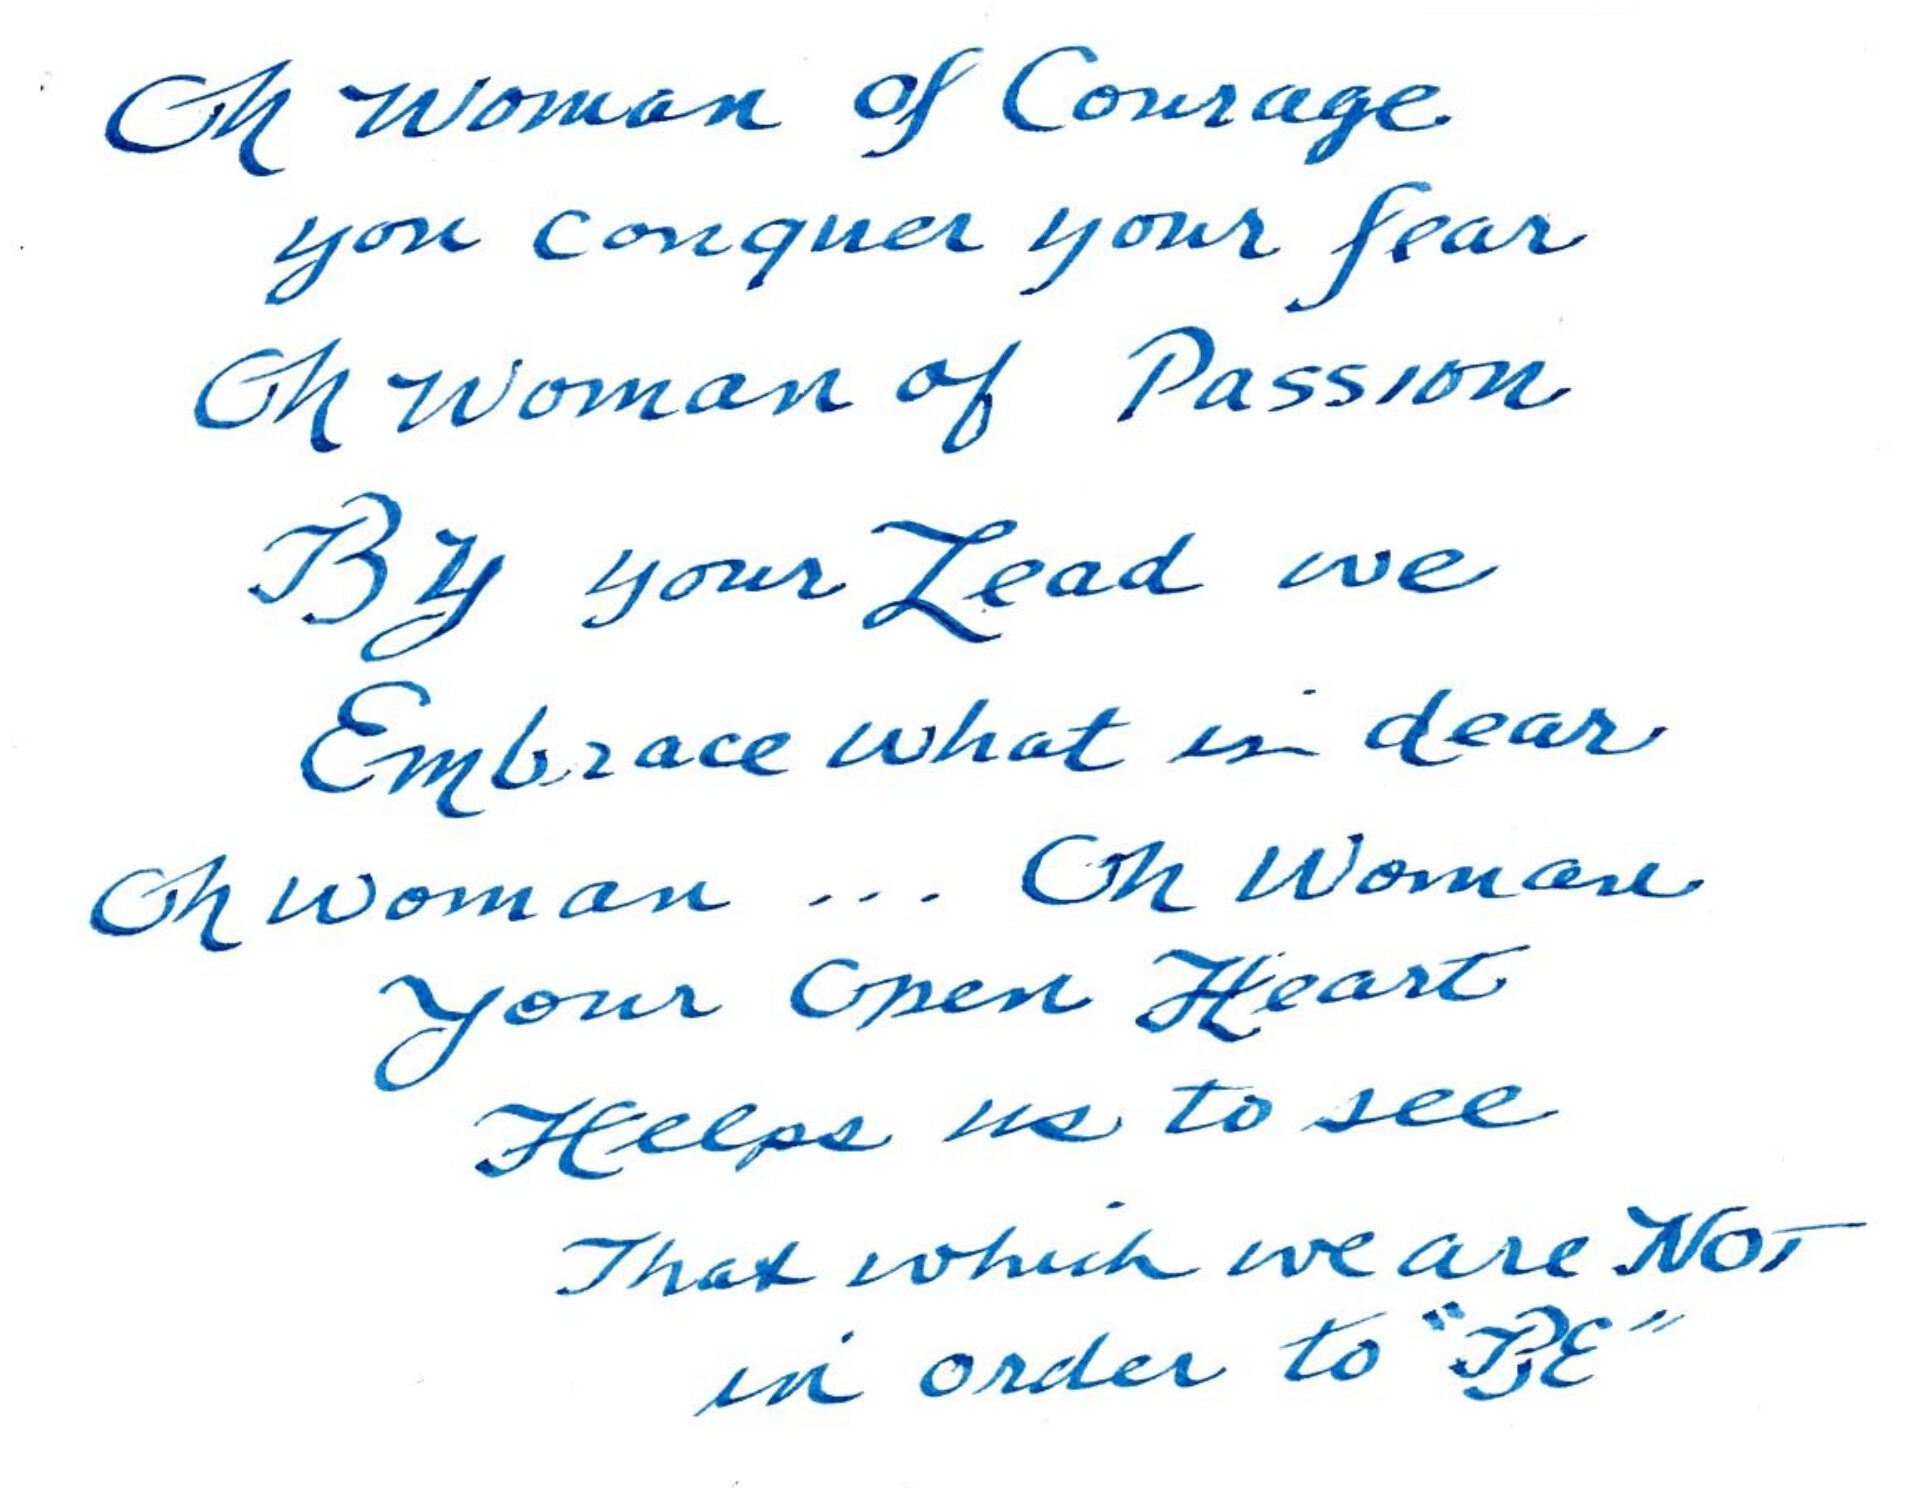 Oh Woman of Courage
you conquer your fear
Oh Woman of Passion
By your Lead we
Embrace what is dear
Oh Woman ... Oh Woman
your Open Heart
Helps us to see
That which we are NOT
in order to "BE"